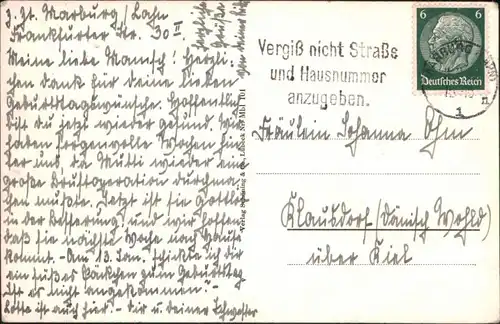 z. Zt. Marburg / Lahn
Frankfurter Str. 30 II
Meine liebe Mansch! Herzli-
chen Dank für Deine lieben
Geburtstagswünsche. Hoffentlich
bist du jetzt wieder gesund. Wir
haben sorgenvolle Wochen hin-
ter uns, da Mutti wieder eine
große Brustoperation durchma-
chen mußte. Jetzt ist sie gottlob
in der Besserung und wir hoffen,
daß sie nächste Woche nach Hause
kommt. - Am 13. Jan. schickte ich dir
ein süßes Päckchen zum Geburtstag
Ist es nicht angekommen? -
Lotte ist auch hier. - Dir u. deiner Schwester
herzliche
Grüße
von deiner
Verlag Schöning & Co., Lübeck
Vergiß nicht Straße
und Hausnummer
anzugeben.
6 6
Deutsches Reich
1
n
Fräulein Johanna Ohm
Klausdorf (Dänisch Wohld)
über Kiel